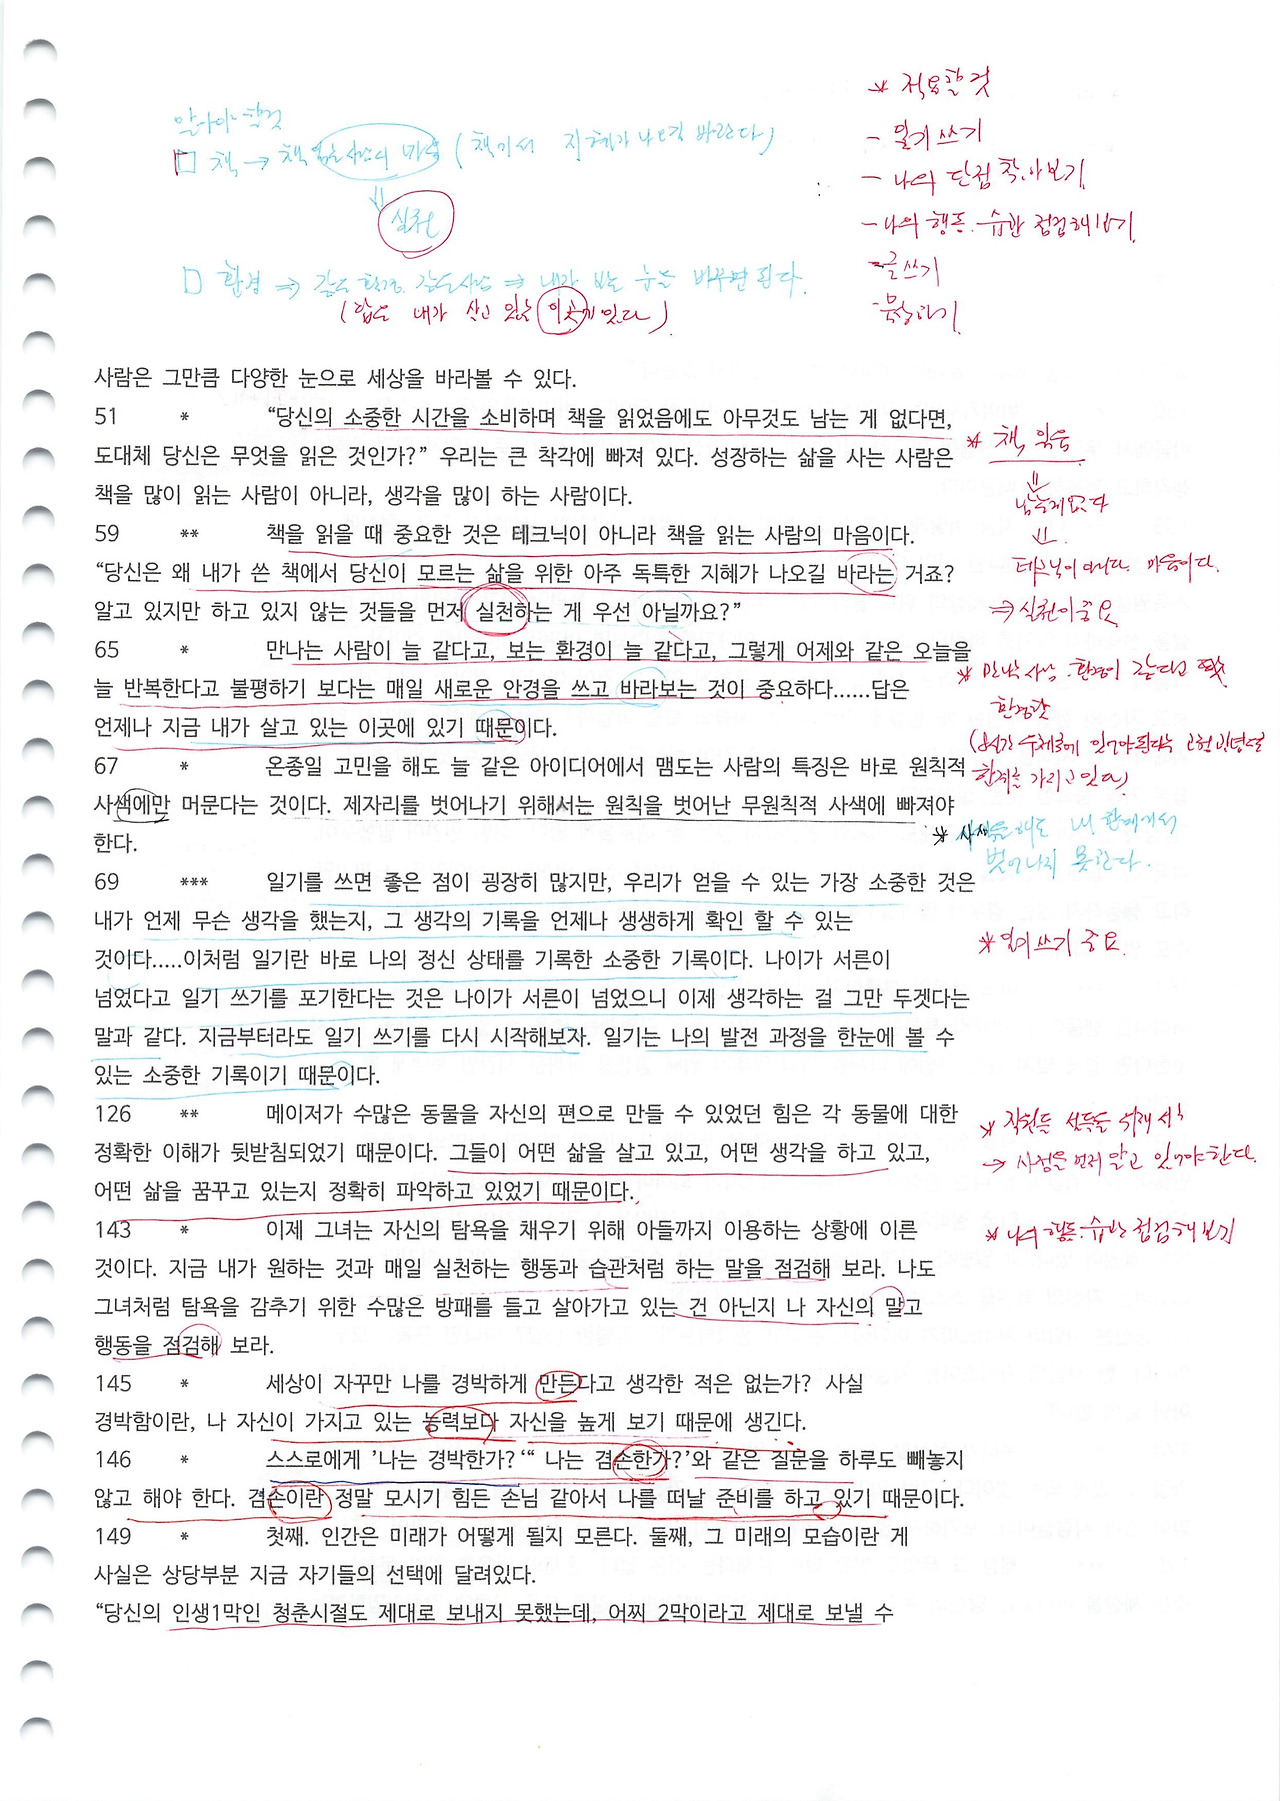 알아야 할것
책 → 책 읽는 사람의 마음 (책에서 지혜가 나오길 바란다)
⇓
실천
환경 ⇒ 같은 환경, 같은 사람 ⇒ 내가 보는 눈을 바꾸면 된다.
(답은 내가 살고 있는 이곳에 있다)
* 적용할 것
- 일기 쓰기
- 나의 단점 찾아보기
- 나의 행동·습관 점검해보기
- 글쓰기
사람은 그만큼 다양한 눈으로 세상을 바라볼 수 있다.
51 * “당신의 소중한 시간을 소비하며 책을 읽었음에도 아무것도 남는 게 없다면,
도대체 당신은 무엇을 읽은 것인가?” 우리는 큰 착각에 빠져 있다. 성장하는 삶을 사는 사람은
책을 많이 읽는 사람이 아니라, 생각을 많이 하는 사람이다.
* 책 읽음
⇓
남는게 없다
⇓
테크닉이 아니다. 마음이다.
⇒ 실천이 중요
59 ** 책을 읽을 때 중요한 것은 테크닉이 아니라 책을 읽는 사람의 마음이다.
“당신은 왜 내가 쓴 책에서 당신이 모르는 삶을 위한 아주 독특한 지혜가 나오길 바라는 거죠?
알고 있지만 하고 있지 않는 것들을 먼저 실천하는 게 우선 아닐까요?”
65 * 만나는 사람이 늘 같다고, 보는 환경이 늘 같다고, 그렇게 어제와 같은 오늘을
늘 반복한다고 불평하기 보다는 매일 새로운 안경을 쓰고 바라보는 것이 중요하다......답은
언제나 지금 내가 살고 있는 이곳에 있기 때문이다.
* 만나는 사람, 환경이 같다고
환경탓
한계를 가리고 있다)
67 * 온종일 고민을 해도 늘 같은 아이디어에서 맴도는 사람의 특징은 바로 원칙적
사색에만 머문다는 것이다. 제자리를 벗어나기 위해서는 원칙을 벗어난 무원칙적 사색에 빠져야
한다.
* 사색을 해도 내 한계에서
벗어나지 못한다.
69 *** 일기를 쓰면 좋은 점이 굉장히 많지만, 우리가 얻을 수 있는 가장 소중한 것은
내가 언제 무슨 생각을 했는지, 그 생각의 기록을 언제나 생생하게 확인 할 수 있는
것이다.....이처럼 일기란 바로 나의 정신 상태를 기록한 소중한 기록이다. 나이가 서른이
넘었다고 일기 쓰기를 포기한다는 것은 나이가 서른이 넘었으니 이제 생각하는 걸 그만 두겟다는
말과 같다. 지금부터라도 일기 쓰기를 다시 시작해보자. 일기는 나의 발전 과정을 한눈에 볼 수
있는 소중한 기록이기 때문이다.
* 일기 쓰기 중요
126 ** 메이저가 수많은 동물을 자신의 편으로 만들 수 있었던 힘은 각 동물에 대한
정확한 이해가 뒷받침되었기 때문이다. 그들이 어떤 삶을 살고 있고, 어떤 생각을 하고 있고,
어떤 삶을 꿈꾸고 있는지 정확히 파악하고 있었기 때문이다.
* 직원들 설득을 위해서
→ 사정을 먼저 알고 있어야한다.
143 * 이제 그녀는 자신의 탐욕을 채우기 위해 아들까지 이용하는 상황에 이른
것이다. 지금 내가 원하는 것과 매일 실천하는 행동과 습관처럼 하는 말을 점검해 보라. 나도
그녀처럼 탐욕을 감추기 위한 수많은 방패를 들고 살아가고 있는 건 아닌지 나 자신의 말고
행동을 점검해 보라.
* 나의 행동·습관 점검해보기
145 * 세상이 자꾸만 나를 경박하게 만든다고 생각한 적은 없는가? 사실
경박함이란, 나 자신이 가지고 있는 능력보다 자신을 높게 보기 때문에 생긴다.
146 * 스스로에게 ’나는 경박한가?‘“ 나는 겸손한가?’와 같은 질문을 하루도 빼놓지
않고 해야 한다. 겸손이란 정말 모시기 힘든 손님 같아서 나를 떠날 준비를 하고 있기 때문이다.
149 * 첫째. 인간은 미래가 어떻게 될지 모른다. 둘째, 그 미래의 모습이란 게
사실은 상당부분 지금 자기들의 선택에 달려있다.
“당신의 인생1막인 청춘시절도 제대로 보내지 못했는데, 어찌 2막이라고 제대로 보낼 수